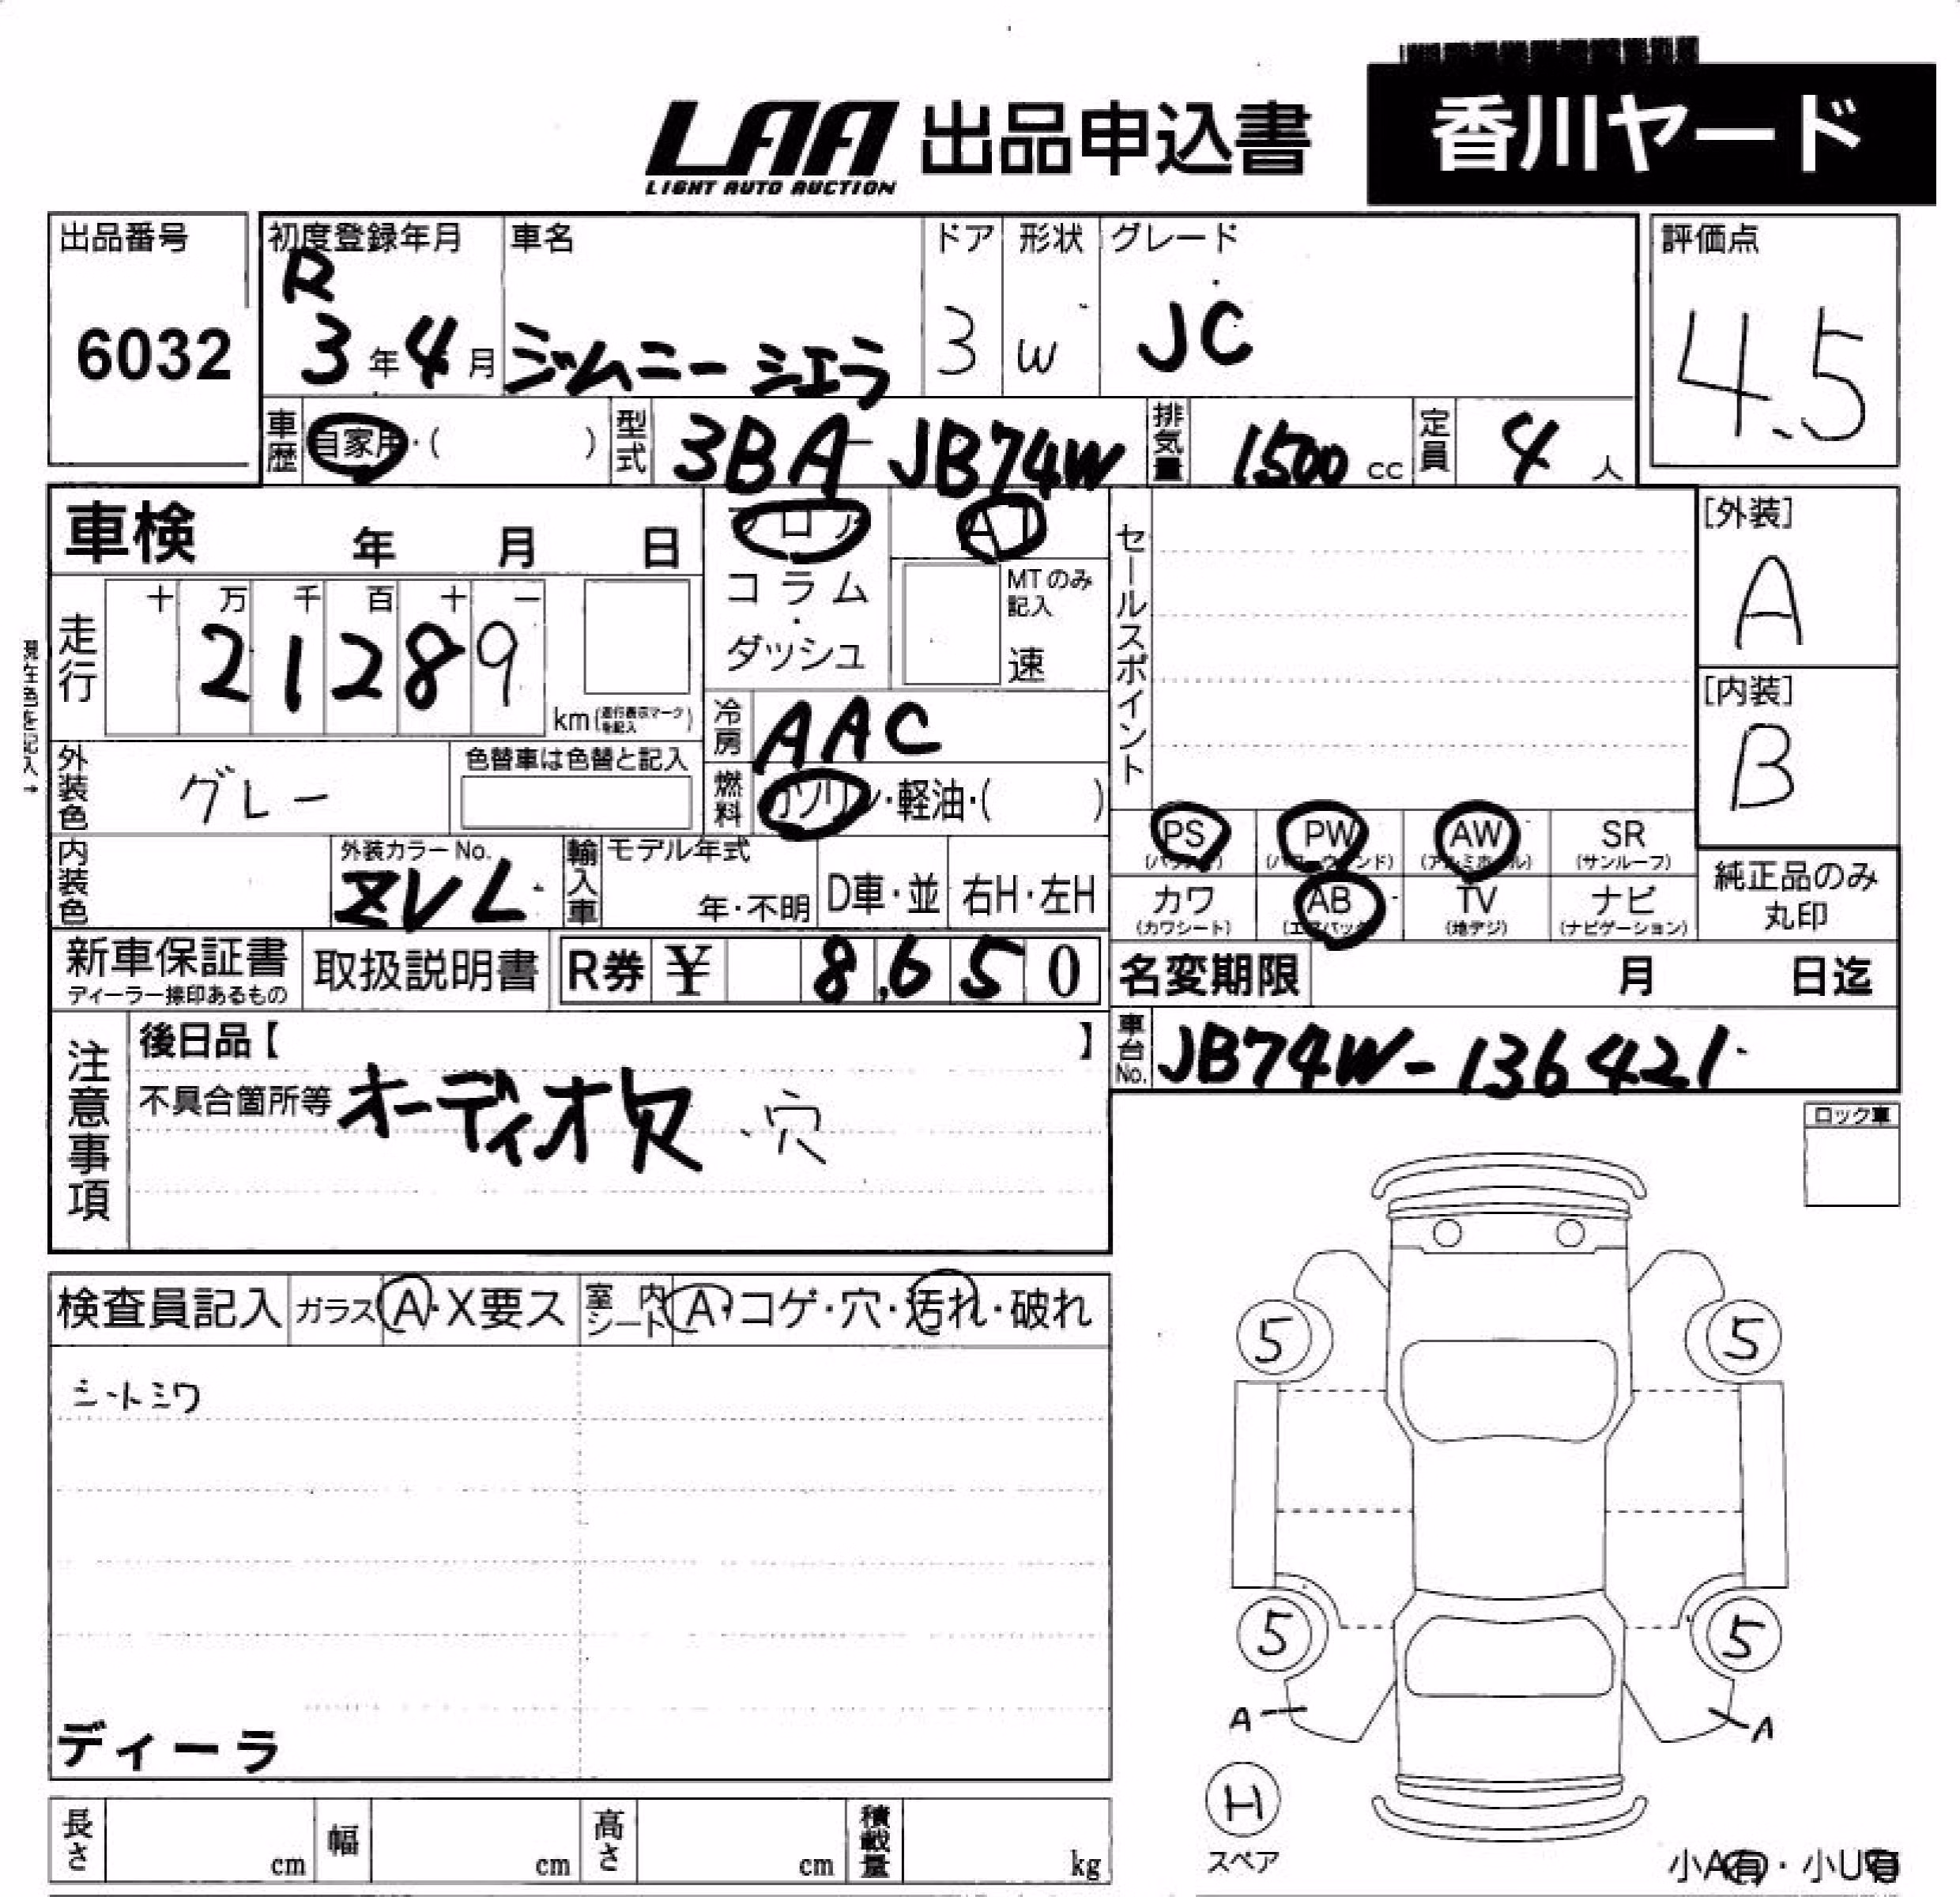 LAA 出品申込書 香川ヤード
LIGHT AUTO AUCTION
出品番号 初度登録年月 車名 ドア 形状 グレード 評価点
6032 R 3年4月 ジムニーシエラ 3 W JC 4.5
車歴 自家用・( ) 型式 3BA-JB74W 排気量 1500 cc 定員 4 人
車検 年 月 日 フロア AT
コラム MTのみ記入
ダッシュ 速
走行 十 万 千 百 十 一
21289 km(走行表示マークを記入)
現在色を記入→
冷房 AAC
外装色 グレー 色替車は色替と記入 燃料 ガソリン・軽油・( )
内装色 外装カラーNo. ZVL 輸入車 モデル年式 年・不明 D車・並 右H・左H
セールスポイント
[外装]
A
[内装]
B
PS (パワステ) PW (パワーウィンド) AW (アルミホイール) SR (サンルーフ)
カワ (カワシート) AB (エアバック) TV (地デジ) ナビ (ナビゲーション)
純正品のみ
丸印
新車保証書 取扱説明書 R券 ¥ 8,650 名変期限 月 日迄
ディーラー捺印あるもの
車台No. JB74W-136421
注意事項 後日品【 】
不具合箇所等 オーディオ欠・穴
ロック車
検査員記入 ガラス A・X要ス 室内シート A・コゲ・穴・汚れ・破れ
シートミワ
ディーラ
5 5
5 5
A A
H
スペア
小A有・小U有
長さ cm 幅 cm 高さ cm 積載量 kg